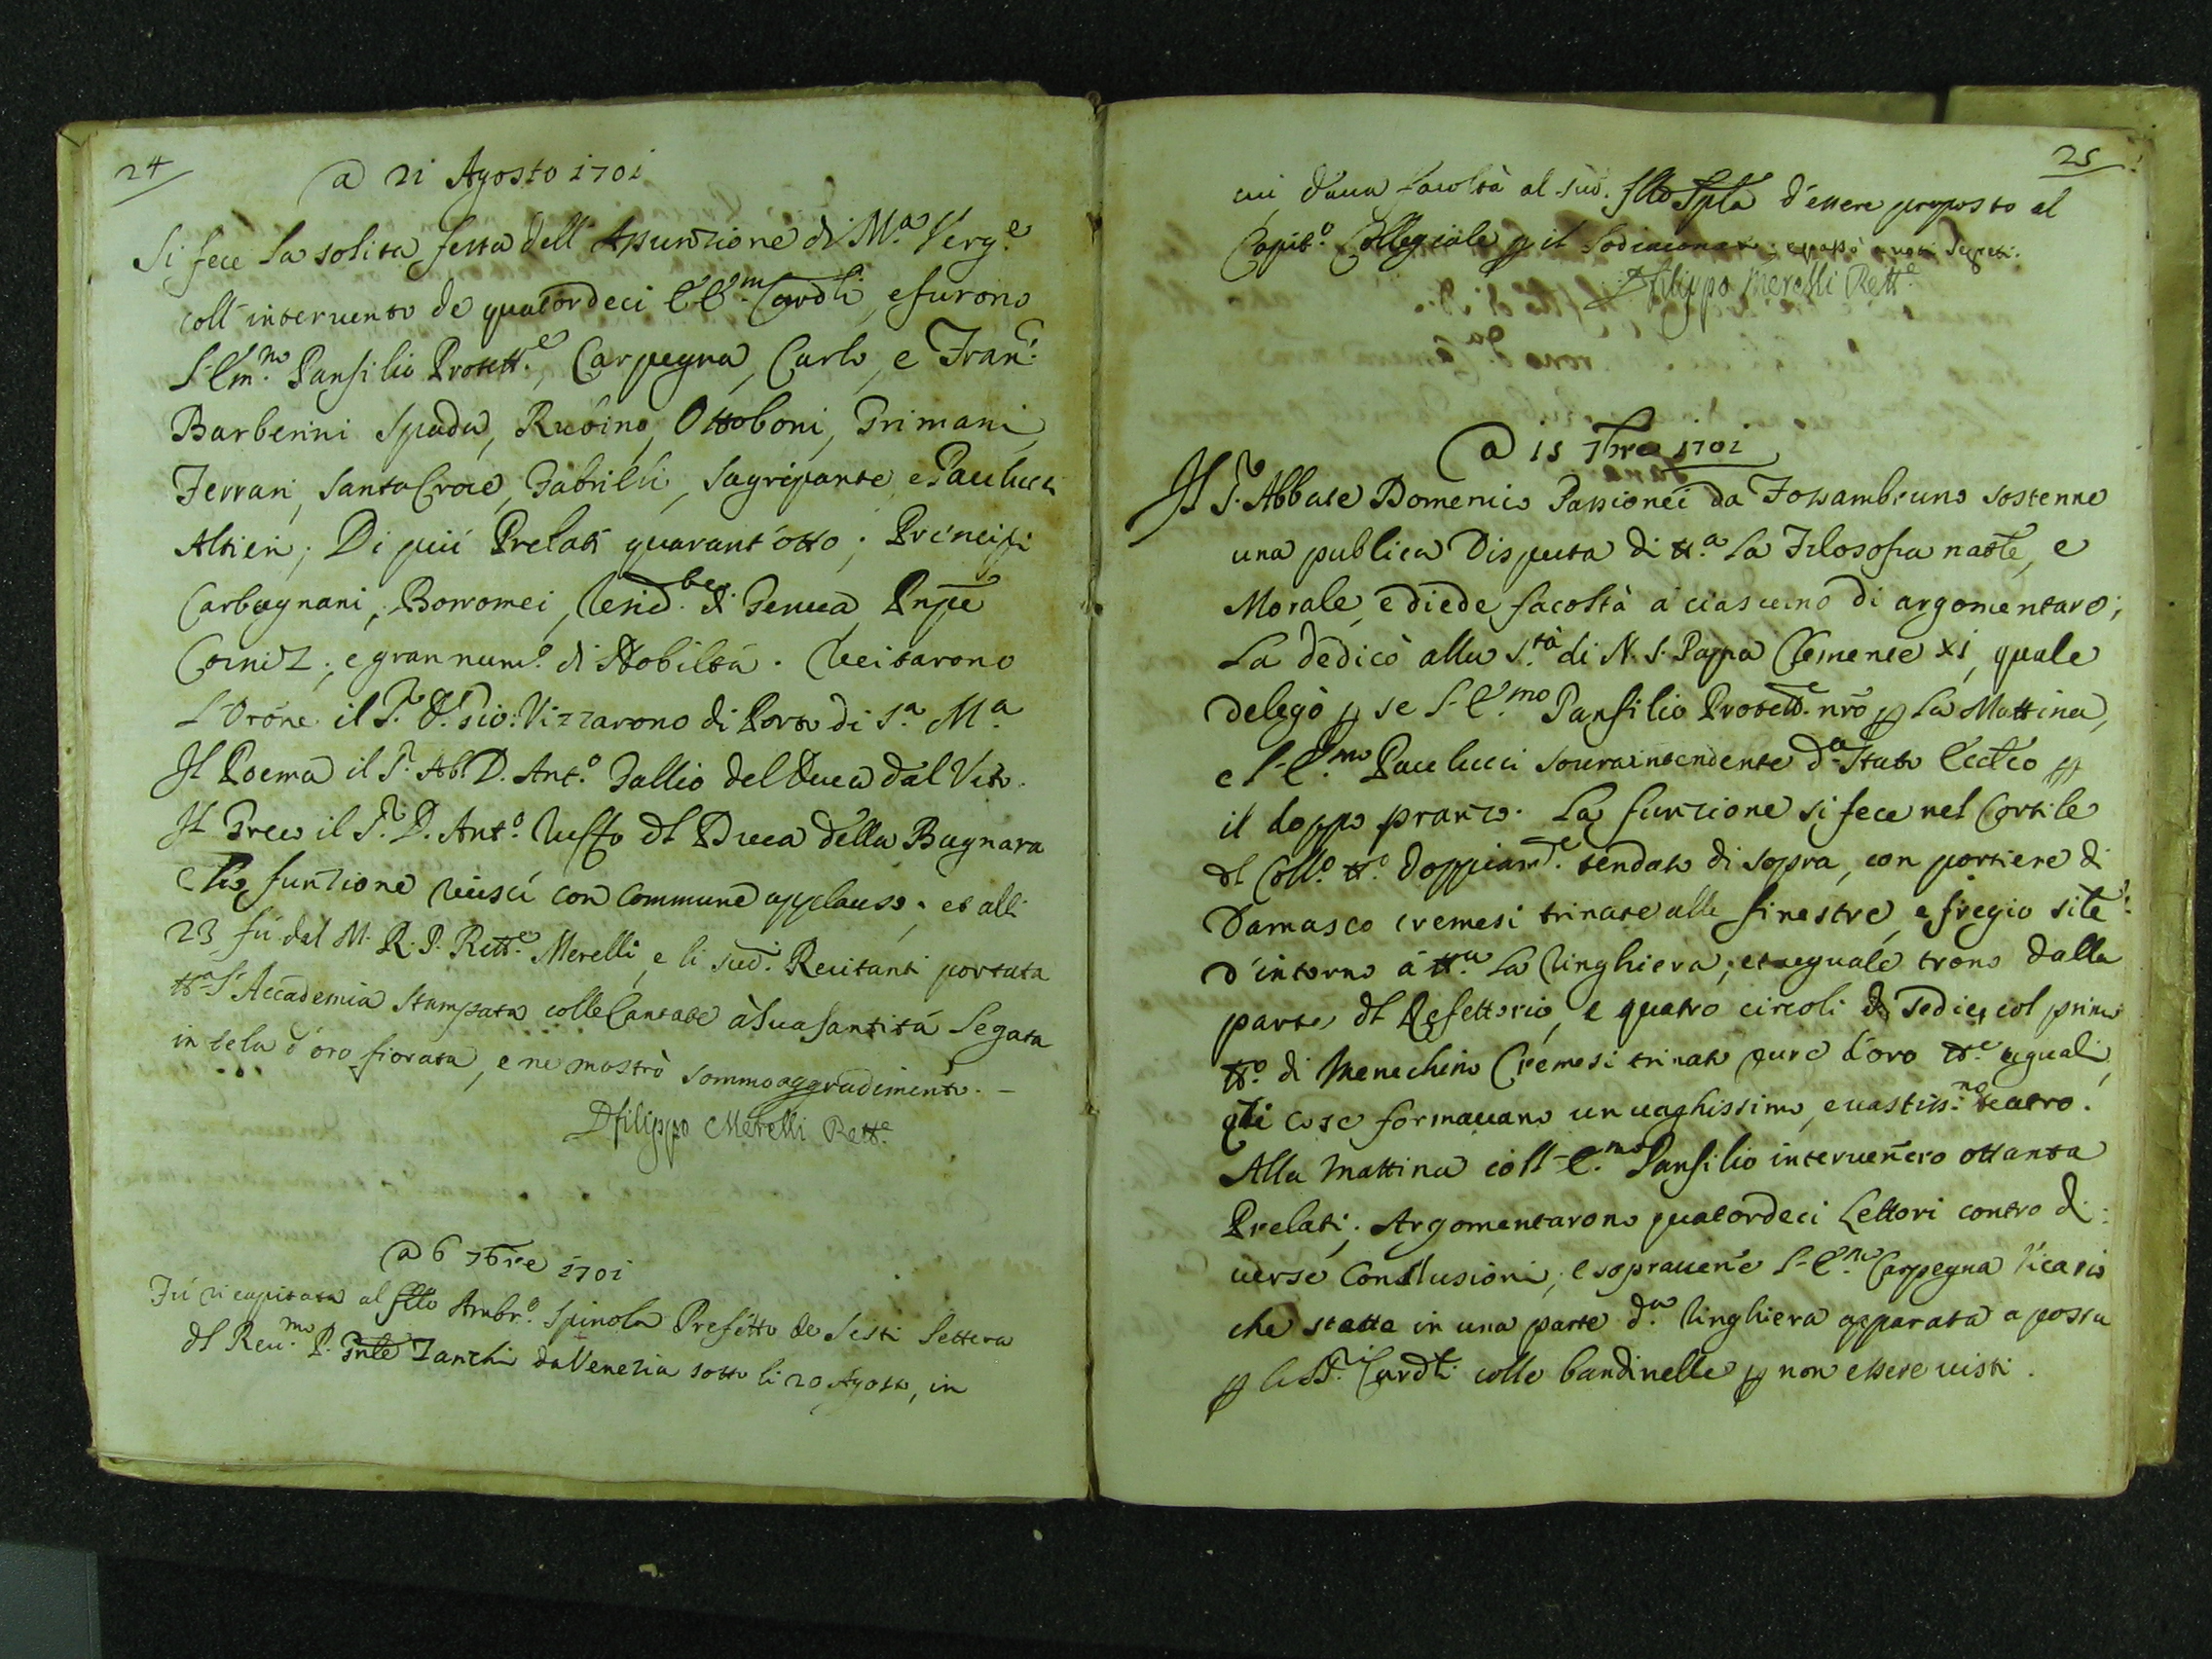 24
a 21 Agosto 1701
Si fece la solita festa dell'Assunzione di M.a Verg.e
coll'intervento de quatordeci E E.m Cardli, e furono
l'Em.mo Panfilio Protett.e, Carpegna, Carlo, e Fran.
Barberini Spada, Rubino, Ottoboni, Grimani,
Ferrari, Santa Croce, Gabrilli, Sagripante e Paulucci
Altieri; Di più Prelati quarant'otto; Principi
Carbognani, Borromei, di Genua
; e gran num.o di Nobiltà. Recitarono
L'Orõne il S.r D. Gio: Vizzarono di Porto di S.a M.a
Il Poema il S.r Ab. D. Ant.o Gallio del Duca dal Vito.
Il Greco il S.r D. Ant.o Ruffo dl Duca della Bagnara
funzione riuscì con commune applauso, et alli
23 fù dal M. R. P. Rett.e Merelli, e li sud.i Recitanti portata
tt.a l'Accademia stampata colle Cantate à Sua Santità legata
in tela d'oro fiorata, e ne mostrò sommo aggradimento. –
D filippo Merelli Rett.e
a 6 7bre 1701
Fù ricapitata al fllo Ambr.o Spinola Prefetto de Sesti lettera
dl Reu.mo P. Gnle Zanchi da Venezia sotto li 20 Agosto, in
25
cui daua facoltà al sud. fllo Spla d'essere proposto al
Capit.o Collegiale p il Sodiaconato; e passò a uoti segreti.
D filippo Merelli Rett.e
a 15 7bre 1701
Il S.r Abbate Domenico Passionei da Fossambruno sostenne
una publica Disputa di tt.a la Filosofia natle, e
Morale, e diede facoltà a ciascuno di argomentare;
La dedicò alla S.tà di N. S. Papa Clemente XI, quale
delegò p se l'E.mo Panfilio Protett.e nrõ p la Mattina,
e l'E.mo Paulucci souraintendente d.o Stato Eccl.co p
il doppo pranzo. La funzione si fece nel Cortile
dl Coll.o tt.o doppiam.te tendato di sopra, con portiere di
Damasco cremesi trinate alle finestre, e fregio sile
d'intorno à tt.a la ringhiera; et uguale trono dalla
parte dl Refettorio, e quatro circoli di sedie, col primo
tt.o di Menechino Cremesi trinato pure d'oro tt.e uguali,
qli cose formauano un uaghissimo, e uastiss.mo teatro.
Alla mattina coll'E.mo Panfilio interuen̄ero ottanta
Prelati; Argomentarono quatordeci Lettori contro di:
uerse Conclusioni; e soprauen̄e l'E.mo Carpegna Vicario
che stette in una parte d.a ringhiera apparata a posta
p li SS.i Cardli colle bandinelle p non essere uisti.